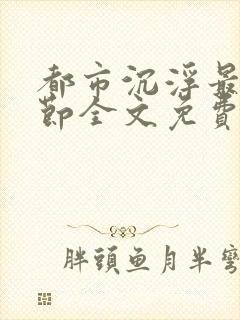 都市沉浮最
節全文免費
胖頭魚月半彎